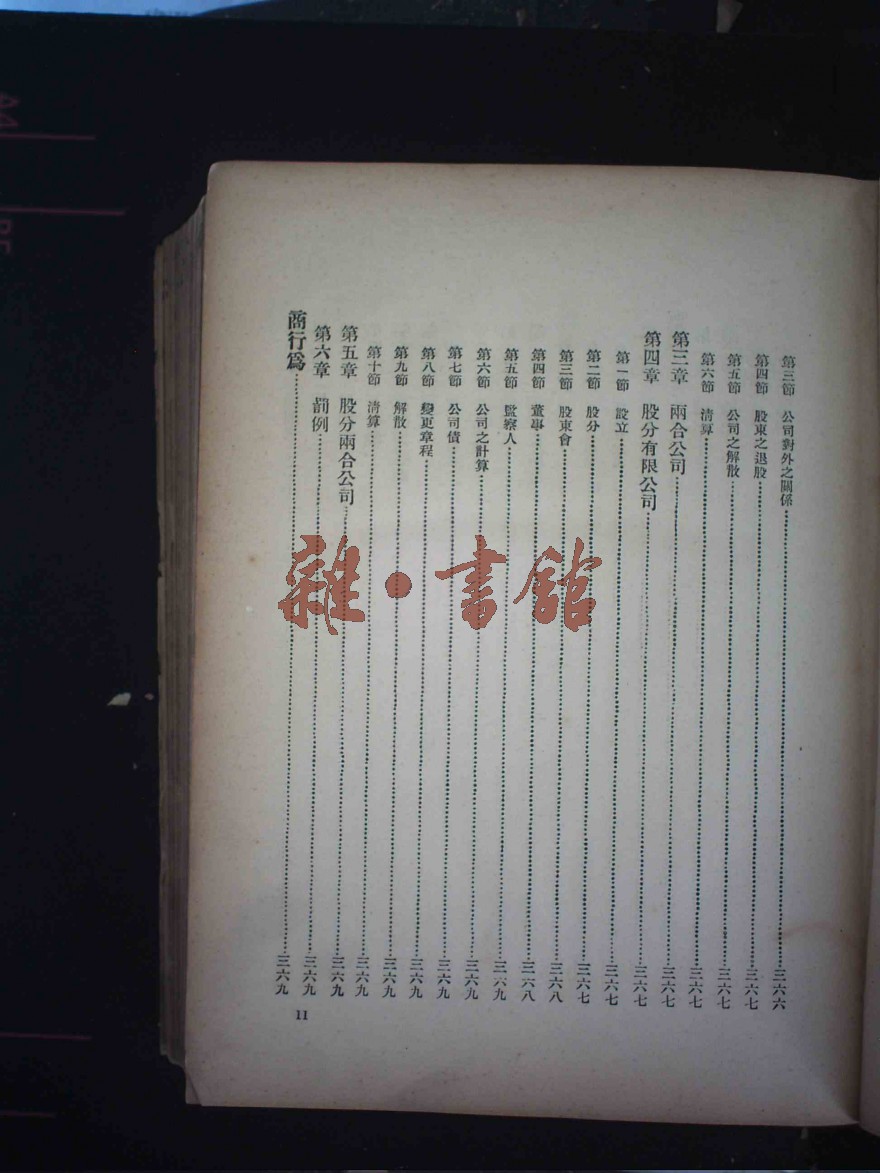 第三節　公司對外之關係……三六六
第四節　股東之退股……三六七
第五節　公司之解散……三六七
第六節　清算……三六七
第三章　兩合公司……三六七
第四章　股分有限公司……三六七
第一節　設立……三六七
第二節　股分……三六七
第三節　股東會……三六八
第四節　董事……三六八
第五節　監察人……三六九
第六節　公司之計算……三六九
第七節　公司債……三六九
第八節　變更章程……三六九
第九節　解散……三六九
第十節　清算……三六九
第五章　股分兩合公司……三六九
第六章　罰例……三六九
商行爲……三六九
11
雜·書館